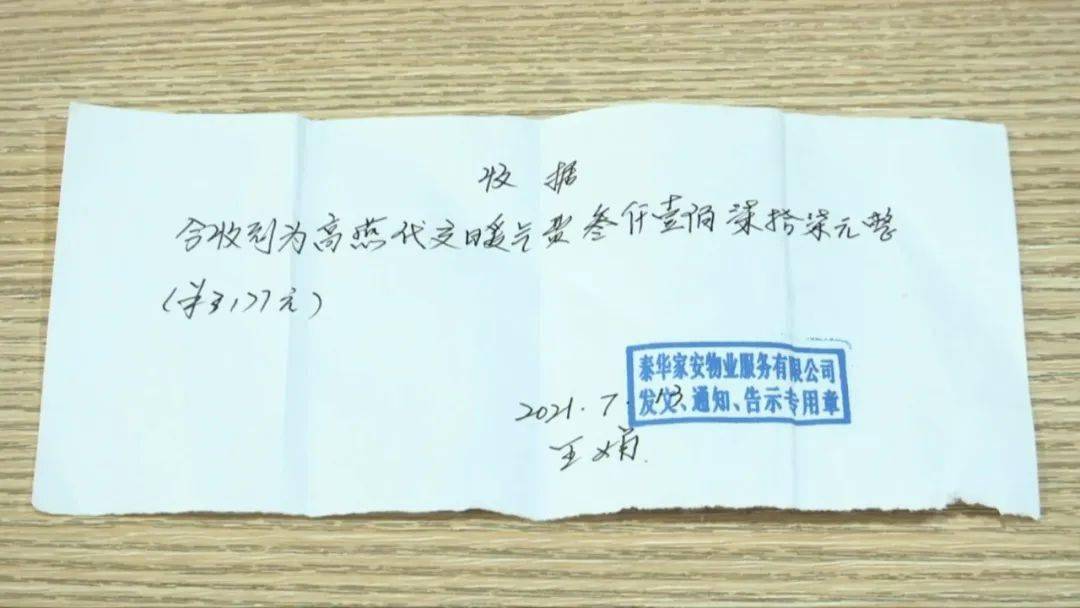 收据
今收到为高燕代交暖气费叁仟壹佰柒拾柒元整
(¥3177元)
泰华家安物业服务有限公司
发文、通知、告示专用章
2021.7.13
王娟